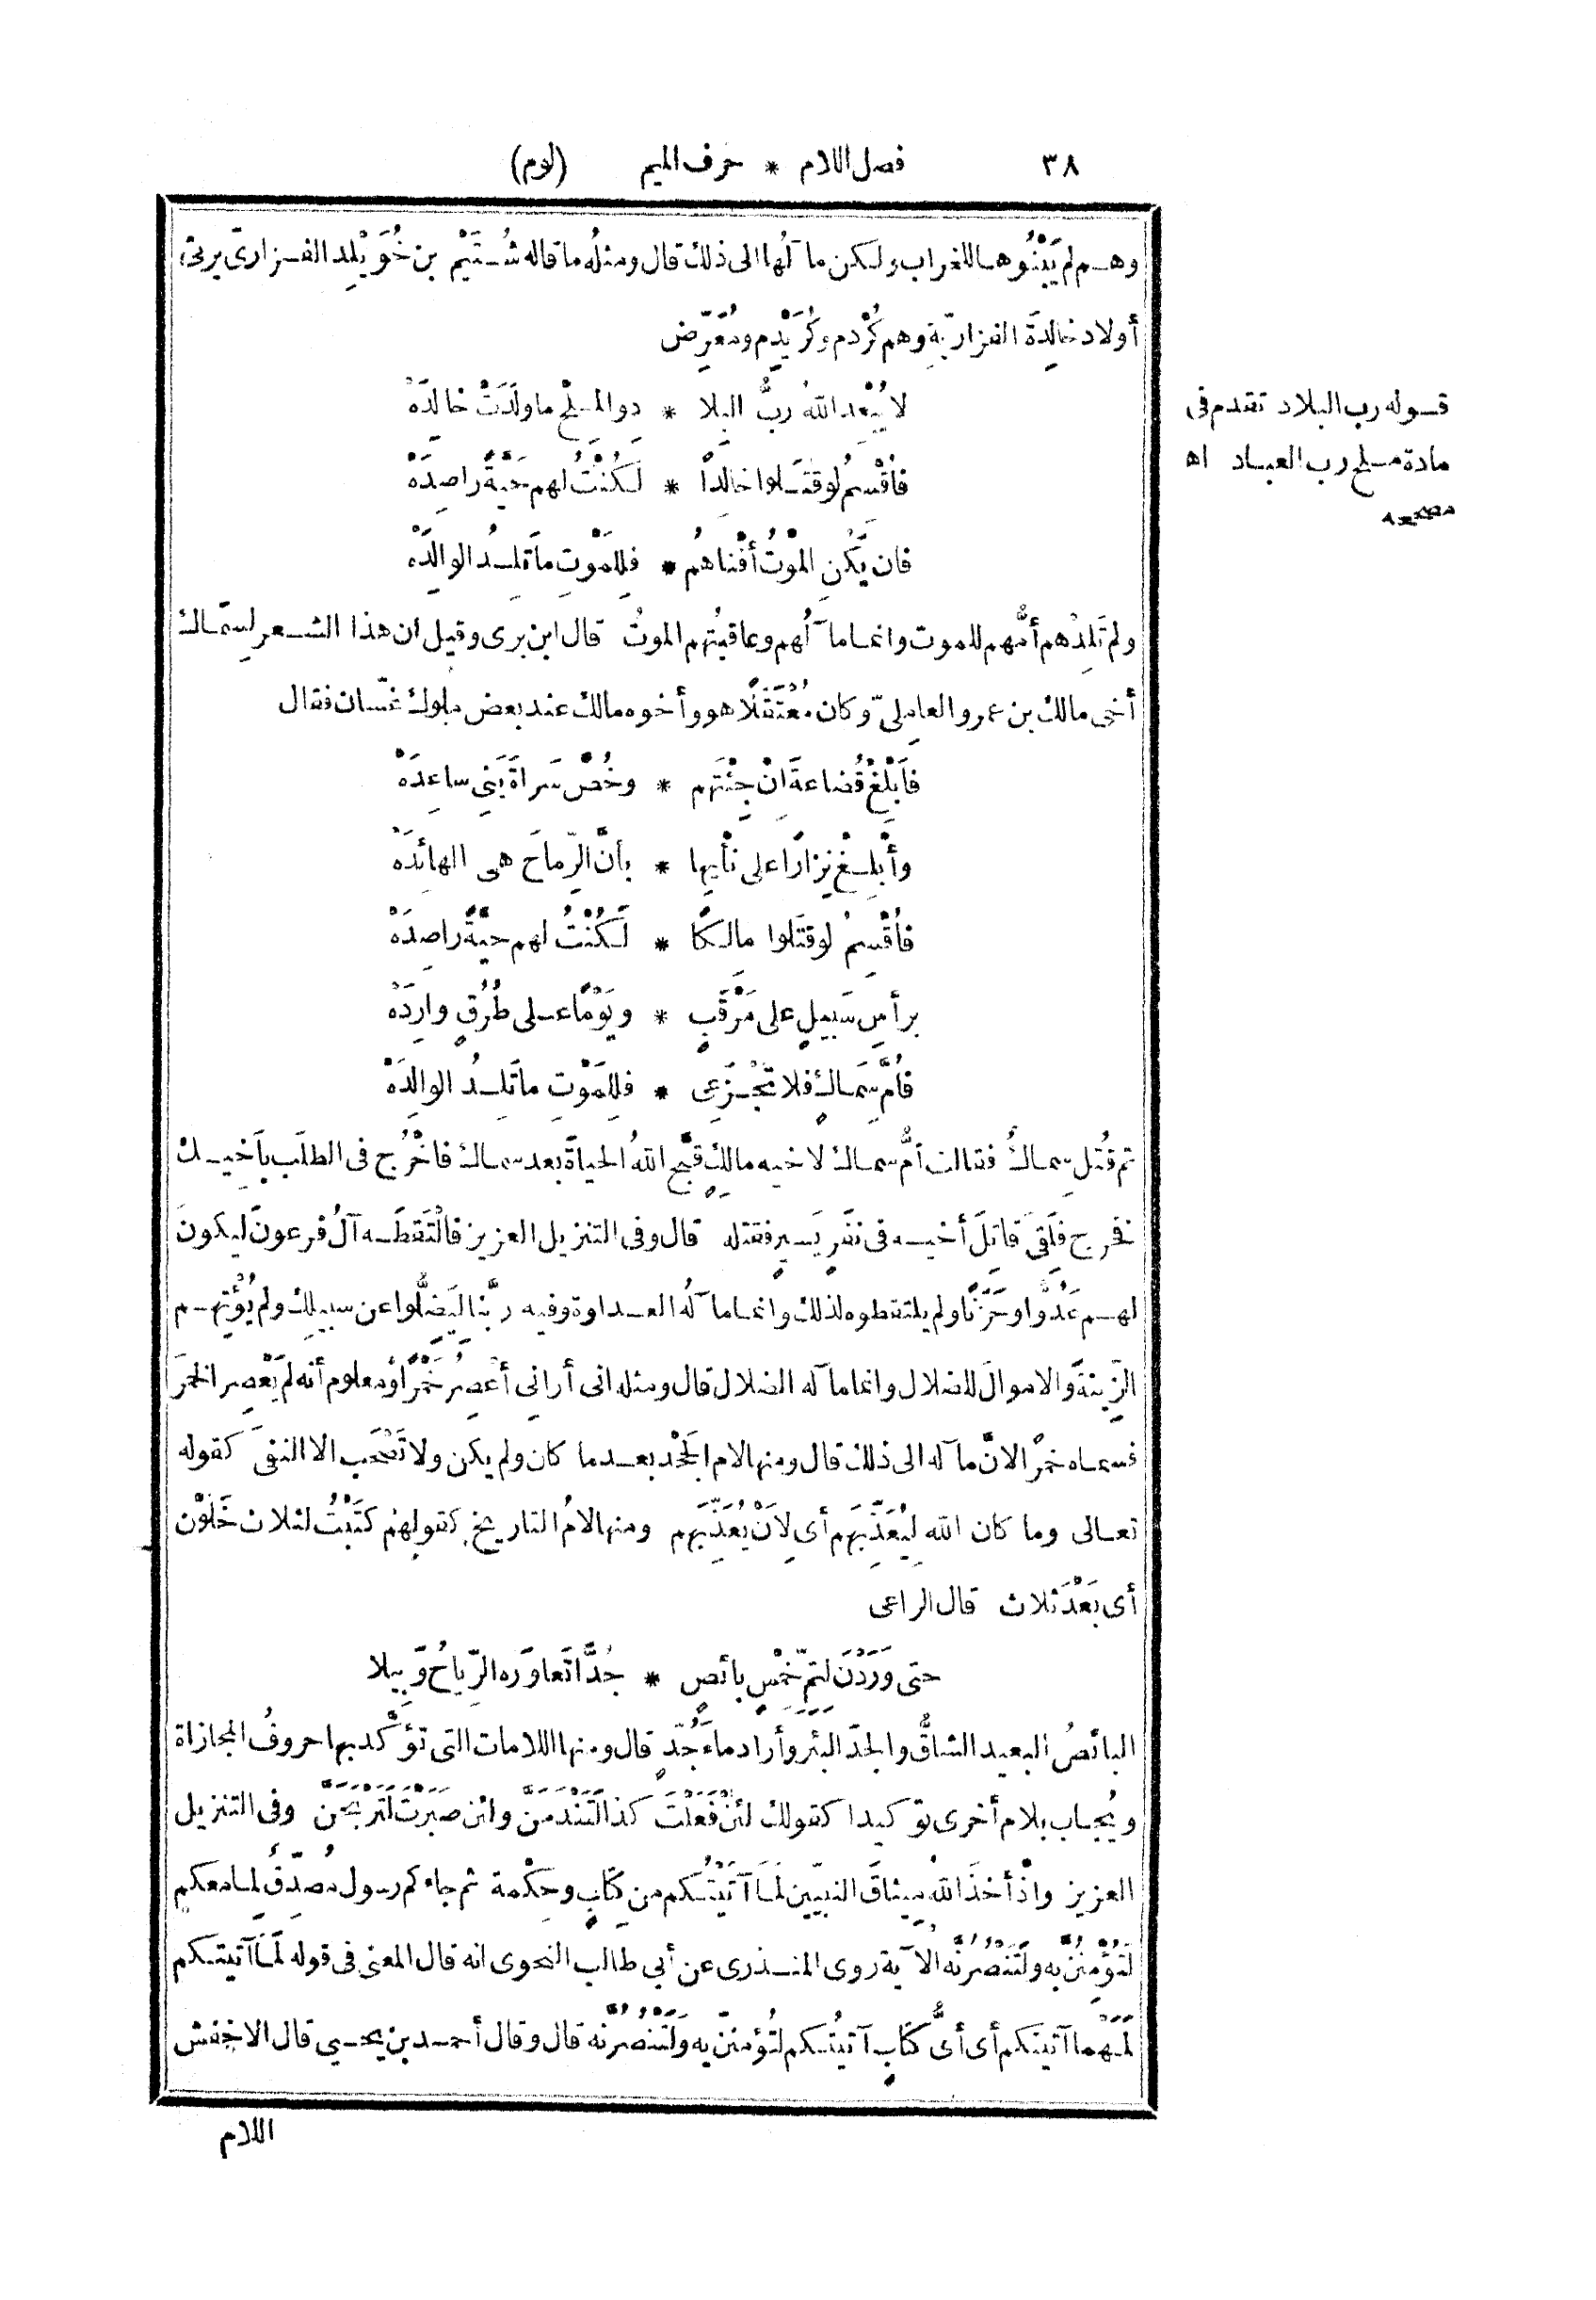 ٣٨ فصل اللام * حرف الميم (لوم)
وهم لم يَبْنُوها للغراب ولكن مآلُها الى ذلك قال ومثلُه ما قاله شُتَيْم بن خُوَيْلِد الفزارىّ يرثى
أولاد خالِدَة الفزارِيّة وهم كُرْدم وكُرَيْدِم ومُعَرِّض
لا يُبْعِد اللهُ ربُّ البِلا * دِ والمِلْحِ ما ولَدَتْ خالِدَهْ
فأُقْسِمُ لو قتَلوا خالِداً * لَكُنْتُ لهم حَيَّةً راصِدَهْ
فان يَكُنِ المَوْتُ أفْناهُمُ * فلِلْمَوْتِ ما تَلِدُ الوالِدَهْ
ولم تَلِدْهم أمُّهم للموت وانما مآلُهم وعاقبتُهم الموتُ قال ابن برى وقيل ان هذا الشعر لسِمَاك
أخى مالك بن عمرو العامِلىّ وكان مُعْتَقَلًا هو وأخوه مالك عند بعض ملوك غسّان فقال
فأَبْلِغْ قُضاعةَ انْ جِئْتَهم * وخُصْ سَراةَ بَنِى ساعِدَهْ
وأَبْلِغْ نِزارًا على نأْيِها * بأنَّ الرِّماحَ هى الهائِدَهْ
فأُقْسِمُ لو قتَلوا مالكًا * لَكُنْتُ لهم حَيَّةً راصِدَهْ
برأسِ سَبيلٍ على مَرْقَبٍ * ويَوْمًا على طُرُقٍ وارِدَهْ
فأُمَّ سِمَاكٍ فلا تَجْزَعِى * فلِلْمَوْتِ ما تَلِدُ الوالِدَهْ
ثم قُتِل سِماكٌ فقالت أمُّ سماك لاخيه مالِكٍ قبَّح اللهُ الحياةَ بعد سماك فاخْرُج فى الطلَب بأَخيك
فخرج فلَقِىَ قاتِلَ أخيه فى نَفَرٍ يَسيرٍ فقتله قال وفى التنزيل العزيز فالْتَقَطَه آلُ فرعونَ ليكونَ
لهم عَدُوًّا وحَزَنًا ولم يلتقطوه لذلك وانما مآلُه العداوة وفيه ربَّنا ليَضِلُّوا عن سبيلِك ولم يُؤْتِهم
الزِّينةَ والاموالَ للضلال وانما مآله الضلال قال ومثله انى أرانِى أعْصِرُ خَمْرًا ومعلوم أنه لم يَعْصِر الخمرَ
فسماه خمرًا لانَّ مآله الى ذلك قال ومنها لام الجَحْد بعد ما كان ولم يكن ولا تَصْحَب الا النفىَ كقوله
تعالى وما كان اللهُ لِيُعَذِّبَهم أى لِأَنْ يُعَذِّبَهم ومنها لامُ التاريخ كقولِهِم كتَبْتُ لثلاث خَلَوْن
أى بَعْدَ ثلاث قال الراعى
حتى وَرَدْنَ لِتِمِّ خِمْسٍ بائصٍ * جُدًّا تَعاوَرَه الرِّياحُ وَبِيلا
البائصُ البعيد الشاقُّ والجدّ البئر وأراد ماءَ جُدٍّ قال ومنها اللامات التى تؤَكّد بها حروفُ المجازاة
ويُجاب بلام أخرى توكيدا كقولك لئنْ فَعَلْتَ كذا لَتَنْدَمَنَّ ولئن صَبَرْتَ لَتَرْبَحَنَّ وفى التنزيل
العزيز واذْ أخذَ اللهُ مِيثاقَ النبيّين لَمَا آتَيْتُكم من كِتابٍ وحِكْمة ثم جاءكم رسول مُصَدِّقٌ لِما معكم
لَتُؤْمِنُنَّ به ولَتَنْصُرُنَّه الآية روى المنذرى عن أبى طالب النحوى انه قال المعنى فى قوله لَمَا آتيتكم
لَمَهْما آتيتكم أى أىُّ كِتابٍ آتيتُكم لتُؤمنُنّ به ولَتَنْصُرُنَّه قال وقال أحمد بن يحيى قال الاخفش
اللام
قوله رب البلاد تقدم فى
مادة ملح رب العباد اه
مصححه